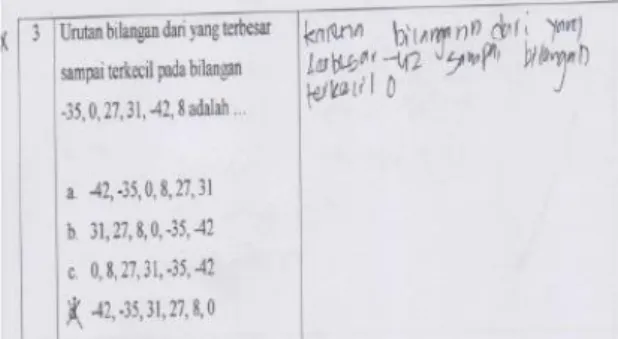 x
3
Urutan bilangan dari yang terbesar
sampai terkecil pada bilangan
-35, 0, 27, 31, -42, 8 adalah ...
a. -42, -35, 0, 8, 27, 31
b. 31, 27, 8, 0, -35, -42
c. 0, 8, 27, 31, -35, -42
-42, -35, 31, 27, 8, 0
karena bilangann dari yang
terbesar -42 sampai bilangan
terkecil 0